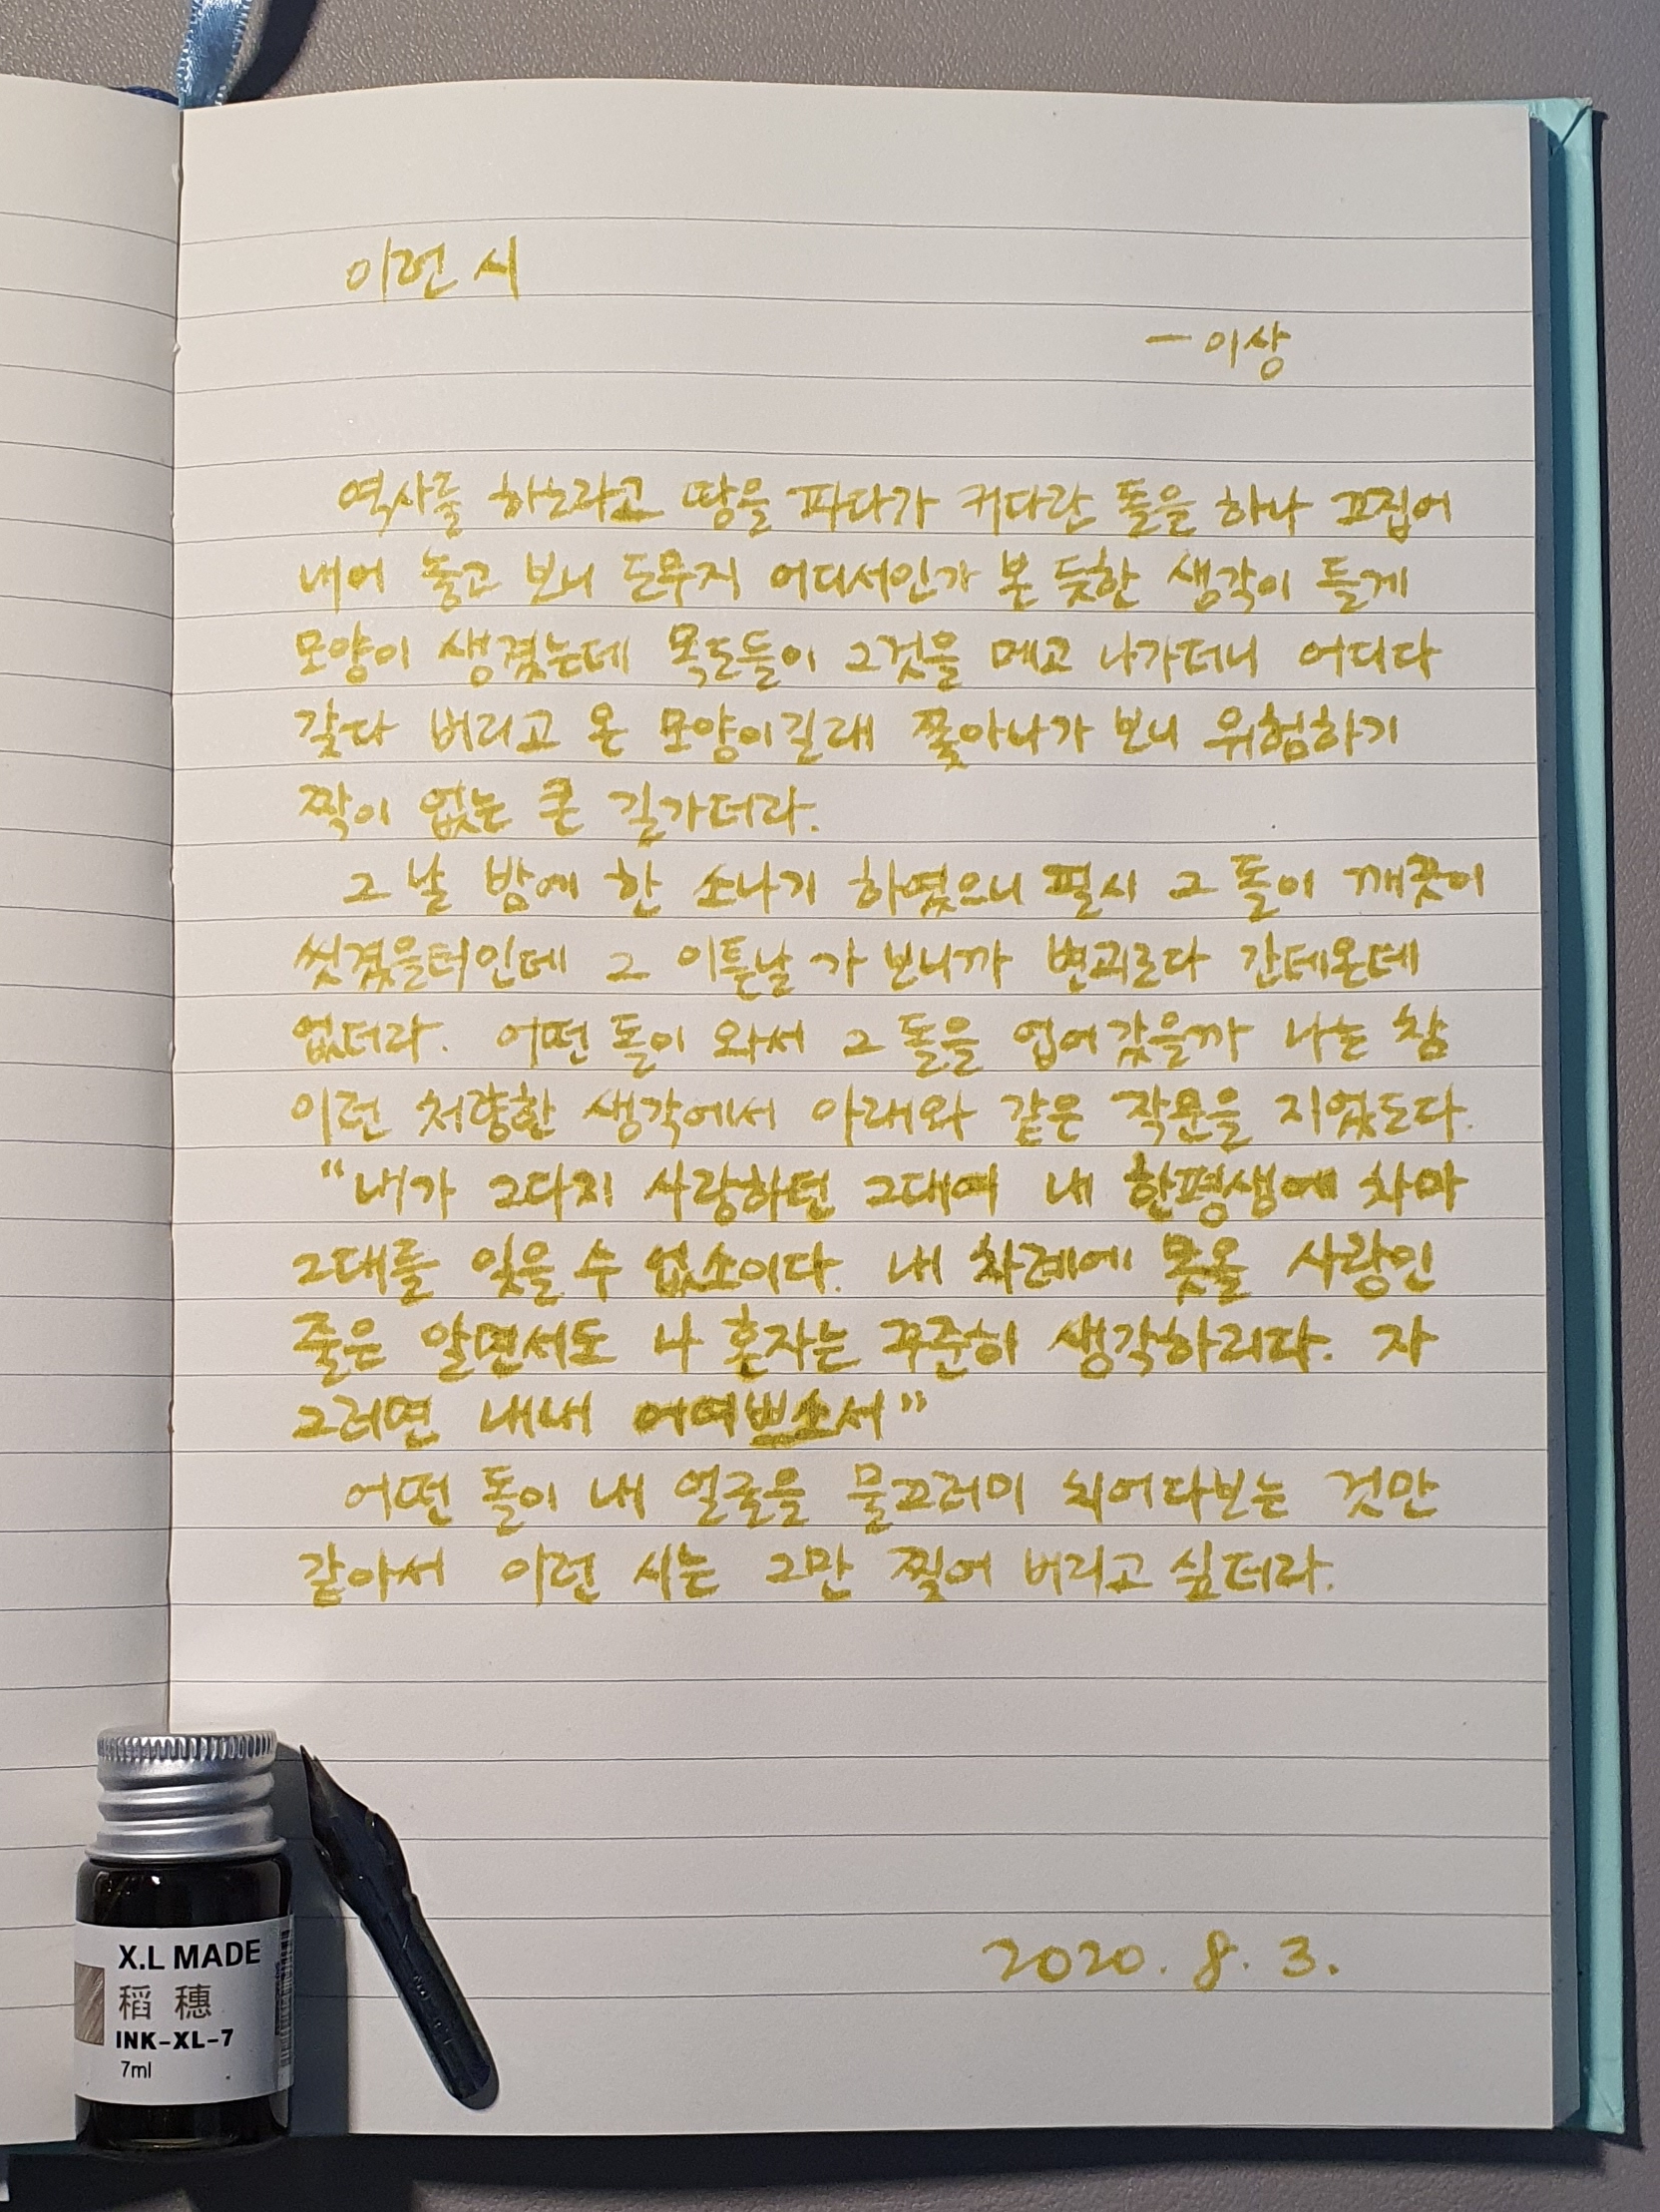 이런 시
- 이상
역사를 하노라고 땅을 파다가 커다란 돌을 하나 끄집어
내어 놓고 보니 도무지 어디서인가 본 듯한 생각이 들게
모양이 생겼는데 목도들이 그것을 메고 나가더니 어디다
갖다 버리고 온 모양이길래 쫓아나가 보니 위험하기
짝이 없는 큰 길가더라.
그 날 밤에 한 소나기 하였으니 필시 그 돌이 깨끗이
씻겼을터인데 그 이튿날 가 보니까 변괴로다 간데온데
없더라. 어떤 돌이 와서 그 돌을 업어갔을까 나는 참
이런 처량한 생각에서 아래와 같은 작문을 지었도다.
"내가 그다지 사랑하던 그대여 내 한평생에 차마
그대를 잊을 수 없소이다. 내 차례에 못올 사랑인
줄은 알면서도 나 혼자는 꾸준히 생각하리다. 자
그러면 내내 어여쁘소서"
어떤 돌이 내 얼굴을 물끄러미 치어다보는 것만
같아서 이런 시는 그만 찢어 버리고 싶더라.
2020. 8. 3.
X.L MADE
稻穗
INK-XL-7
7ml